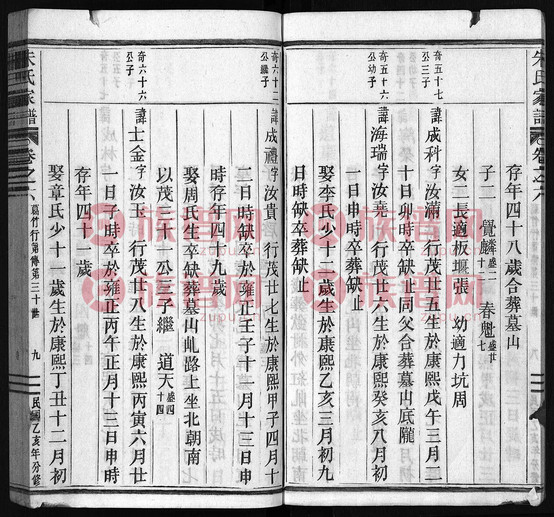 朱氏家譜
卷之六
存年四十八歲合葬墓山
子二 覺麟盛二十 春魁盛廿七
女二長適板堰張 幼適力坑周
奇五十七公三子
諱成科字汝滿 行茂廿五生於康熙戊午三月二
十日卯時卒缺止同父合葬墓山底隴
奇五十六公幼子
諱海瑞字汝堯 行茂廿六生於康熙癸亥八月初
一日申時卒葬缺止
娶李氏少十一歲生於康熙乙亥三月初九
日時缺卒葬缺止
奇六十二公繼子
諱成禮字汝貴 行茂廿七生於康熙甲子四月十
二日時缺卒於雍正壬子十月十三日申
時存年四十九歲
娶周氏生卒缺葬墓山乢路上坐北朝南
以茂三十二公三子繼 道天盛四十四
奇六十六公子
諱士金字汝玉 行茂廿八生於康熙丙寅六月廿
一日子時卒於雍正丙午正月十三日申時
存年四十一歲
娶章氏少十一歲生於康熙丁丑十二月初
朱氏家譜
卷之六
葛竹行弟傳第三十世
九
民國乙亥年分修
族普网
zupu.cn